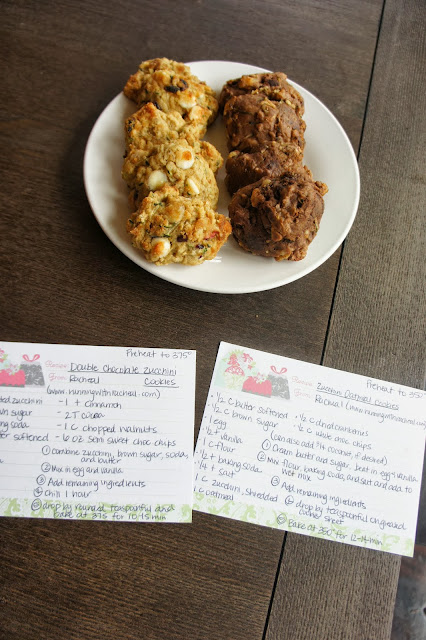 Preheat to 375°
Recipe: Double Chocolate Zucchini
From: Racheal Cookies
(www.runningwithracheal.com)
zucchini - 1 t cinnamon
sugar - 2 T cocoa
soda - 1 C chopped walnuts
softened - 6 oz semi sweet choc chips
① combine zucchini, brown sugar, soda,
and butter
② Mix in egg and vanilla
③ Add remaining ingredients
④ Chill 1 hour
⑤ drop by rounded teaspoonful and
bake at 375 for 10-15 min
Preheat to 350°
Recipe: Zucchini Oatmeal Cookies
From: Racheal
· 1/2 C butter softened · 1/2 C dried cranberries
· 1/2 C brown sugar · 1/2 C white choc chips
· 1 egg (can also add 3/4 coconut, if desired)
· 1/2 t vanilla ① Cream butter and sugar. beat in egg & vanilla
· 1 C flour ② Mix flour, baking soda, and salt and add to
wet mix
· 1/2 t baking soda
· 1/4 t salt ③ Add remaining ingredients
· 1 C zucchini, shredded ④ drop by teaspoonful on greased
cookie sheet
· 1 C oatmeal
⑤ bake at 350° for 12-14 min